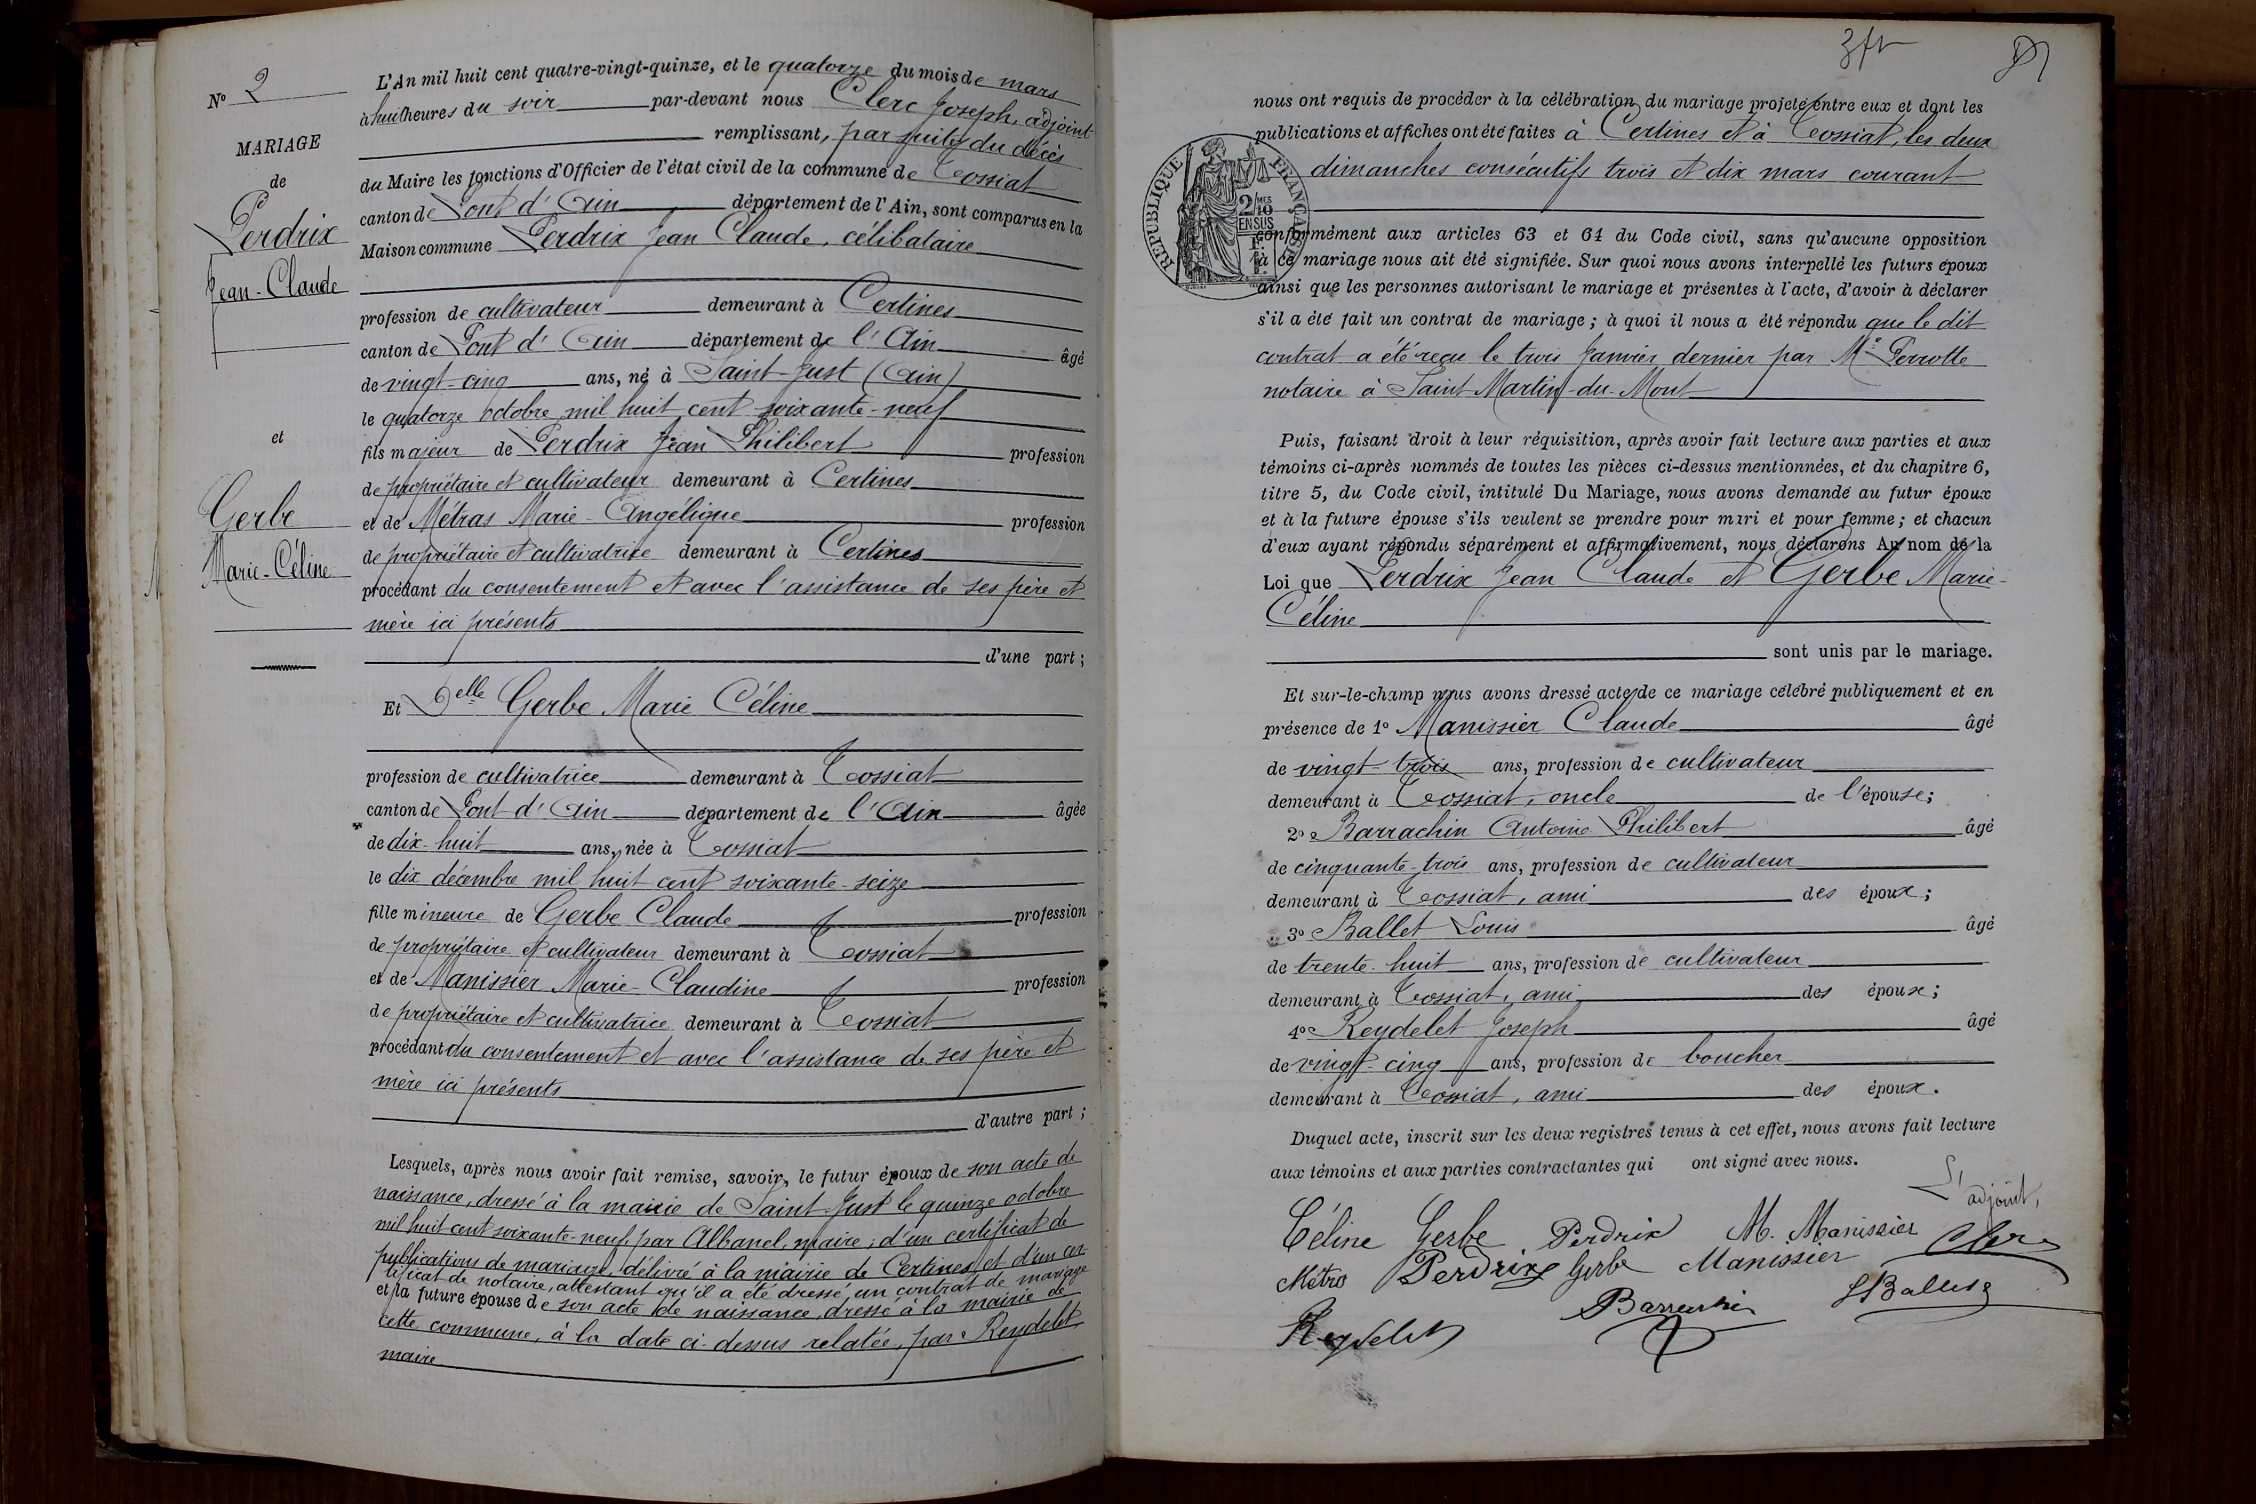 N° 2
MARIAGE
de
Perdrix
Jean-Claude
et
Gerbe
Marie-Céline
L'An mil huit cent quatre-vingt-quinze, et le quatorze du mois de mars
à huit heures du soir par-devant nous Clerc Joseph, adjoint
remplissant, par suite du décès
du Maire les fonctions d'Officier de l'état civil de la commune de Tossiat
canton de Pont d'Ain département de l'Ain, sont comparus en la
Maison commune Perdrix Jean Claude, célibataire
profession de cultivateur demeurant à Certines
canton de Pont d'Ain département de l'Ain âgé
de vingt-cinq ans, né à Saint-Just (Ain)
le quatorze octobre mil huit cent soixante-neuf
fils majeur de Perdrix Jean Philibert profession
de propriétaire et cultivateur demeurant à Certines
et de Métras Marie-Angélique profession
de propriétaire et cultivatrice demeurant à Certines
procédant du consentement et avec l'assistance de ses père et
mère ici présents
d'une part;
Et Delle Gerbe Marie Céline
profession de cultivatrice demeurant à Tossiat
canton de Pont d'Ain département de l'Ain âgée
de dix-huit ans, née à Tossiat
le dix décembre mil huit cent soixante-seize
fille mineure de Gerbe Claude profession
de propriétaire et cultivateur demeurant à Tossiat
et de Manissier Marie-Claudine profession
de propriétaire et cultivatrice demeurant à Tossiat
procédant du consentement et avec l'assistance de ses père et
mère ici présents
d'autre part;
Lesquels, après nous avoir fait remise, savoir, le futur époux de son acte de
naissance, dressé à la mairie de Saint-Just le quinze octobre
mil huit cent soixante-neuf par Albanel, maire; d'un certificat de
publications de mariage, délivré à la mairie de Certines et d'un cer-
tificat de notaire, attestant qu'il a été dressé un contrat de mariage
et la future épouse de son acte de naissance, dressé à la mairie de
cette commune, à la date ci-dessus relatée, par Reydelet,
maire
nous ont requis de procéder à la célébration du mariage projeté entre eux et dont les
publications et affiches ont été faites à Certines et à Tossiat, les deux
dimanches consécutifs trois et dix mars courant
RÉPUBLIQUE FRANÇAISE
2/10 MES
EN SUS
conformément aux articles 63 et 64 du Code civil, sans qu'aucune opposition
à ce mariage nous ait été signifiée. Sur quoi nous avons interpellé les futurs époux
ainsi que les personnes autorisant le mariage et présentes à l'acte, d'avoir à déclarer
s'il a été fait un contrat de mariage; à quoi il nous a été répondu que le dit
contrat a été reçu le trois Janvier dernier par Me Perrotte
notaire à Saint Martin-du-Mont
Puis, faisant droit à leur réquisition, après avoir fait lecture aux parties et aux
témoins ci-après nommés de toutes les pièces ci-dessus mentionnées, et du chapitre 6,
titre 5, du Code civil, intitulé Du Mariage, nous avons demandé au futur époux
et à la future épouse s'ils veulent se prendre pour mari et pour femme; et chacun
d'eux ayant répondu séparément et affirmativement, nous déclarons Au nom de la
Loi que Perdrix Jean Claude et Gerbe Marie-
Céline
sont unis par le mariage.
Et sur-le-champ nous avons dressé acte de ce mariage célébré publiquement et en
présence de 1° Manissier Claude âgé
de vingt-trois ans, profession de cultivateur
demeurant à Tossiat, oncle de l'épouse;
2° Barrachin Antoine Philibert âgé
de cinquante-trois ans, profession de cultivateur
demeurant à Tossiat, ami des époux;
3° Ballet Louis âgé
de trente-huit ans, profession de cultivateur
demeurant à Tossiat, ami des époux;
4° Reydelet Joseph âgé
de vingt-cinq ans, profession de boucher
demeurant à Tossiat, ami des époux.
Duquel acte, inscrit sur les deux registres tenus à cet effet, nous avons fait lecture
aux témoins et aux parties contractantes qui ont signé avec nous.
L'adjoint,
Céline Gerbe Perdrix M. Manissier Clerc
Métras Perdrix Gerbe Manissier
Barrachin L Ballet
Reydelet